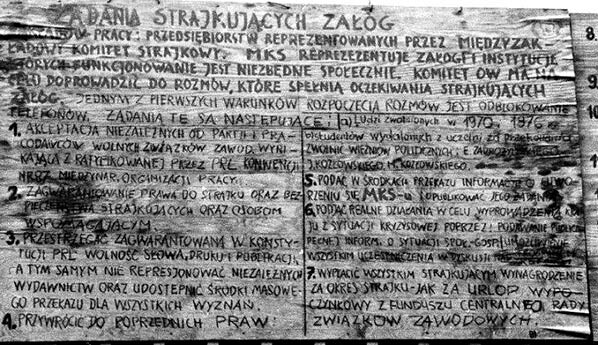 ŻĄDANIA STRAJKUJĄCYCH ZAŁÓG
PRACY: PRZEDSIĘBIORSTW REPREZENTOWANYCH PRZEZ MIĘDZYZAK-
ŁADOWY KOMITET STRAJKOWY. MKS REPREZENTUJE ZAŁOGI I INSTYTUCJE
KTÓRYCH FUNKCJONOWANIE JEST NIEZBĘDNE SPOŁECZNIE. KOMITET ÓW MA NA
CELU DOPROWADZIĆ DO ROZMÓW, KTÓRE SPEŁNIĄ OCZEKIWANIA STRAJKUJĄCYCH
ZAŁÓG. JEDNYM Z PIERWSZYCH WARUNKÓW ROZPOCZĘCIA ROZMÓW JEST ODBLOKOWANIE
TELEFONÓW. ŻĄDANIA TE SĄ NASTĘPUJĄCE:
1. AKCEPTACJA NIEZALEŻNYCH OD PARTII I PRA-
CODAWCÓW WOLNYCH ZWIĄZKÓW ZAWOD. WYNI-
KAJĄCA Z RATYFIKOWANEJ PRZEZ PRL KONWENCJI
NR 87 MIĘDZYNAR. ORGANIZACJI PRACY.
2. ZAGWARANTOWANIE PRAWA DO STRAJKU ORAZ BEZ-
PIECZEŃSTWA STRAJKUJĄCYM ORAZ OSOBOM
WSPOMAGAJĄCYM.
3. PRZESTRZEGAĆ ZAGWARANTOWANĄ W KONSTY-
TUCJI PRL WOLNOŚĆ SŁOWA, DRUKU I PUBLIKACJI,
A TYM SAMYM NIE REPRESJONOWAĆ NIEZALEŻNYCH
WYDAWNICTW ORAZ UDOSTĘPNIĆ ŚRODKI MASOWE-
GO PRZEKAZU DLA WSZYSTKICH WYZNAŃ.
4. PRZYWRÓCIĆ DO POPRZEDNICH PRAW:
a) LUDZI ZWOLNIONYCH W 1970 i 1976
STUDENTÓW WYDALONYCH Z UCZELNI ZA PRZEKONANIA
ZWOLNIĆ WIĘŹNIÓW POLITYCZNYCH: E. ZADROŻYŃSKIEGO
J. KOZŁOWSKIEGO M. KOZŁOWSKIEGO.
5. PODAĆ W ŚRODKACH PRZEKAZU INFORMACJE O UTWO-
RZENIU SIĘ MKS-u I OPUBLIKOWAĆ JEGO ŻĄDANIA
6. PODJĄĆ REALNE DZIAŁANIA W CELU WYPROWADZENIA KRA-
JU Z SYTUACJI KRYZYSOWEJ POPRZEZ: PODAWANIE PUBLICZ
PEŁNEJ INFORM. O SYTUACJI SPOŁ.-GOSP. UMOŻLIWIENIE
WSZYSTKIM UCZESTNICZENIA W DYSKUSJI NAD
7. WYPŁACIĆ WSZYSTKIM STRAJKUJĄCYM WYNAGRODZENIE
ZA OKRES STRAJKU-JAK ZA URLOP WYPO-
CZYNKOWY Z FUNDUSZU CENTRALNEJ RADY
ZWIĄZKÓW ZAWODOWYCH.
8.
9.
10
1
1